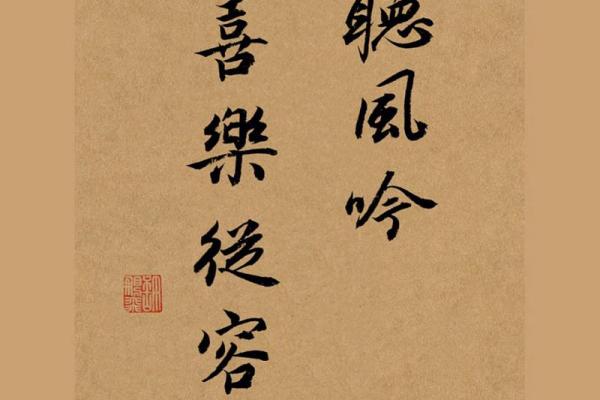 聽風吟
喜樂從容